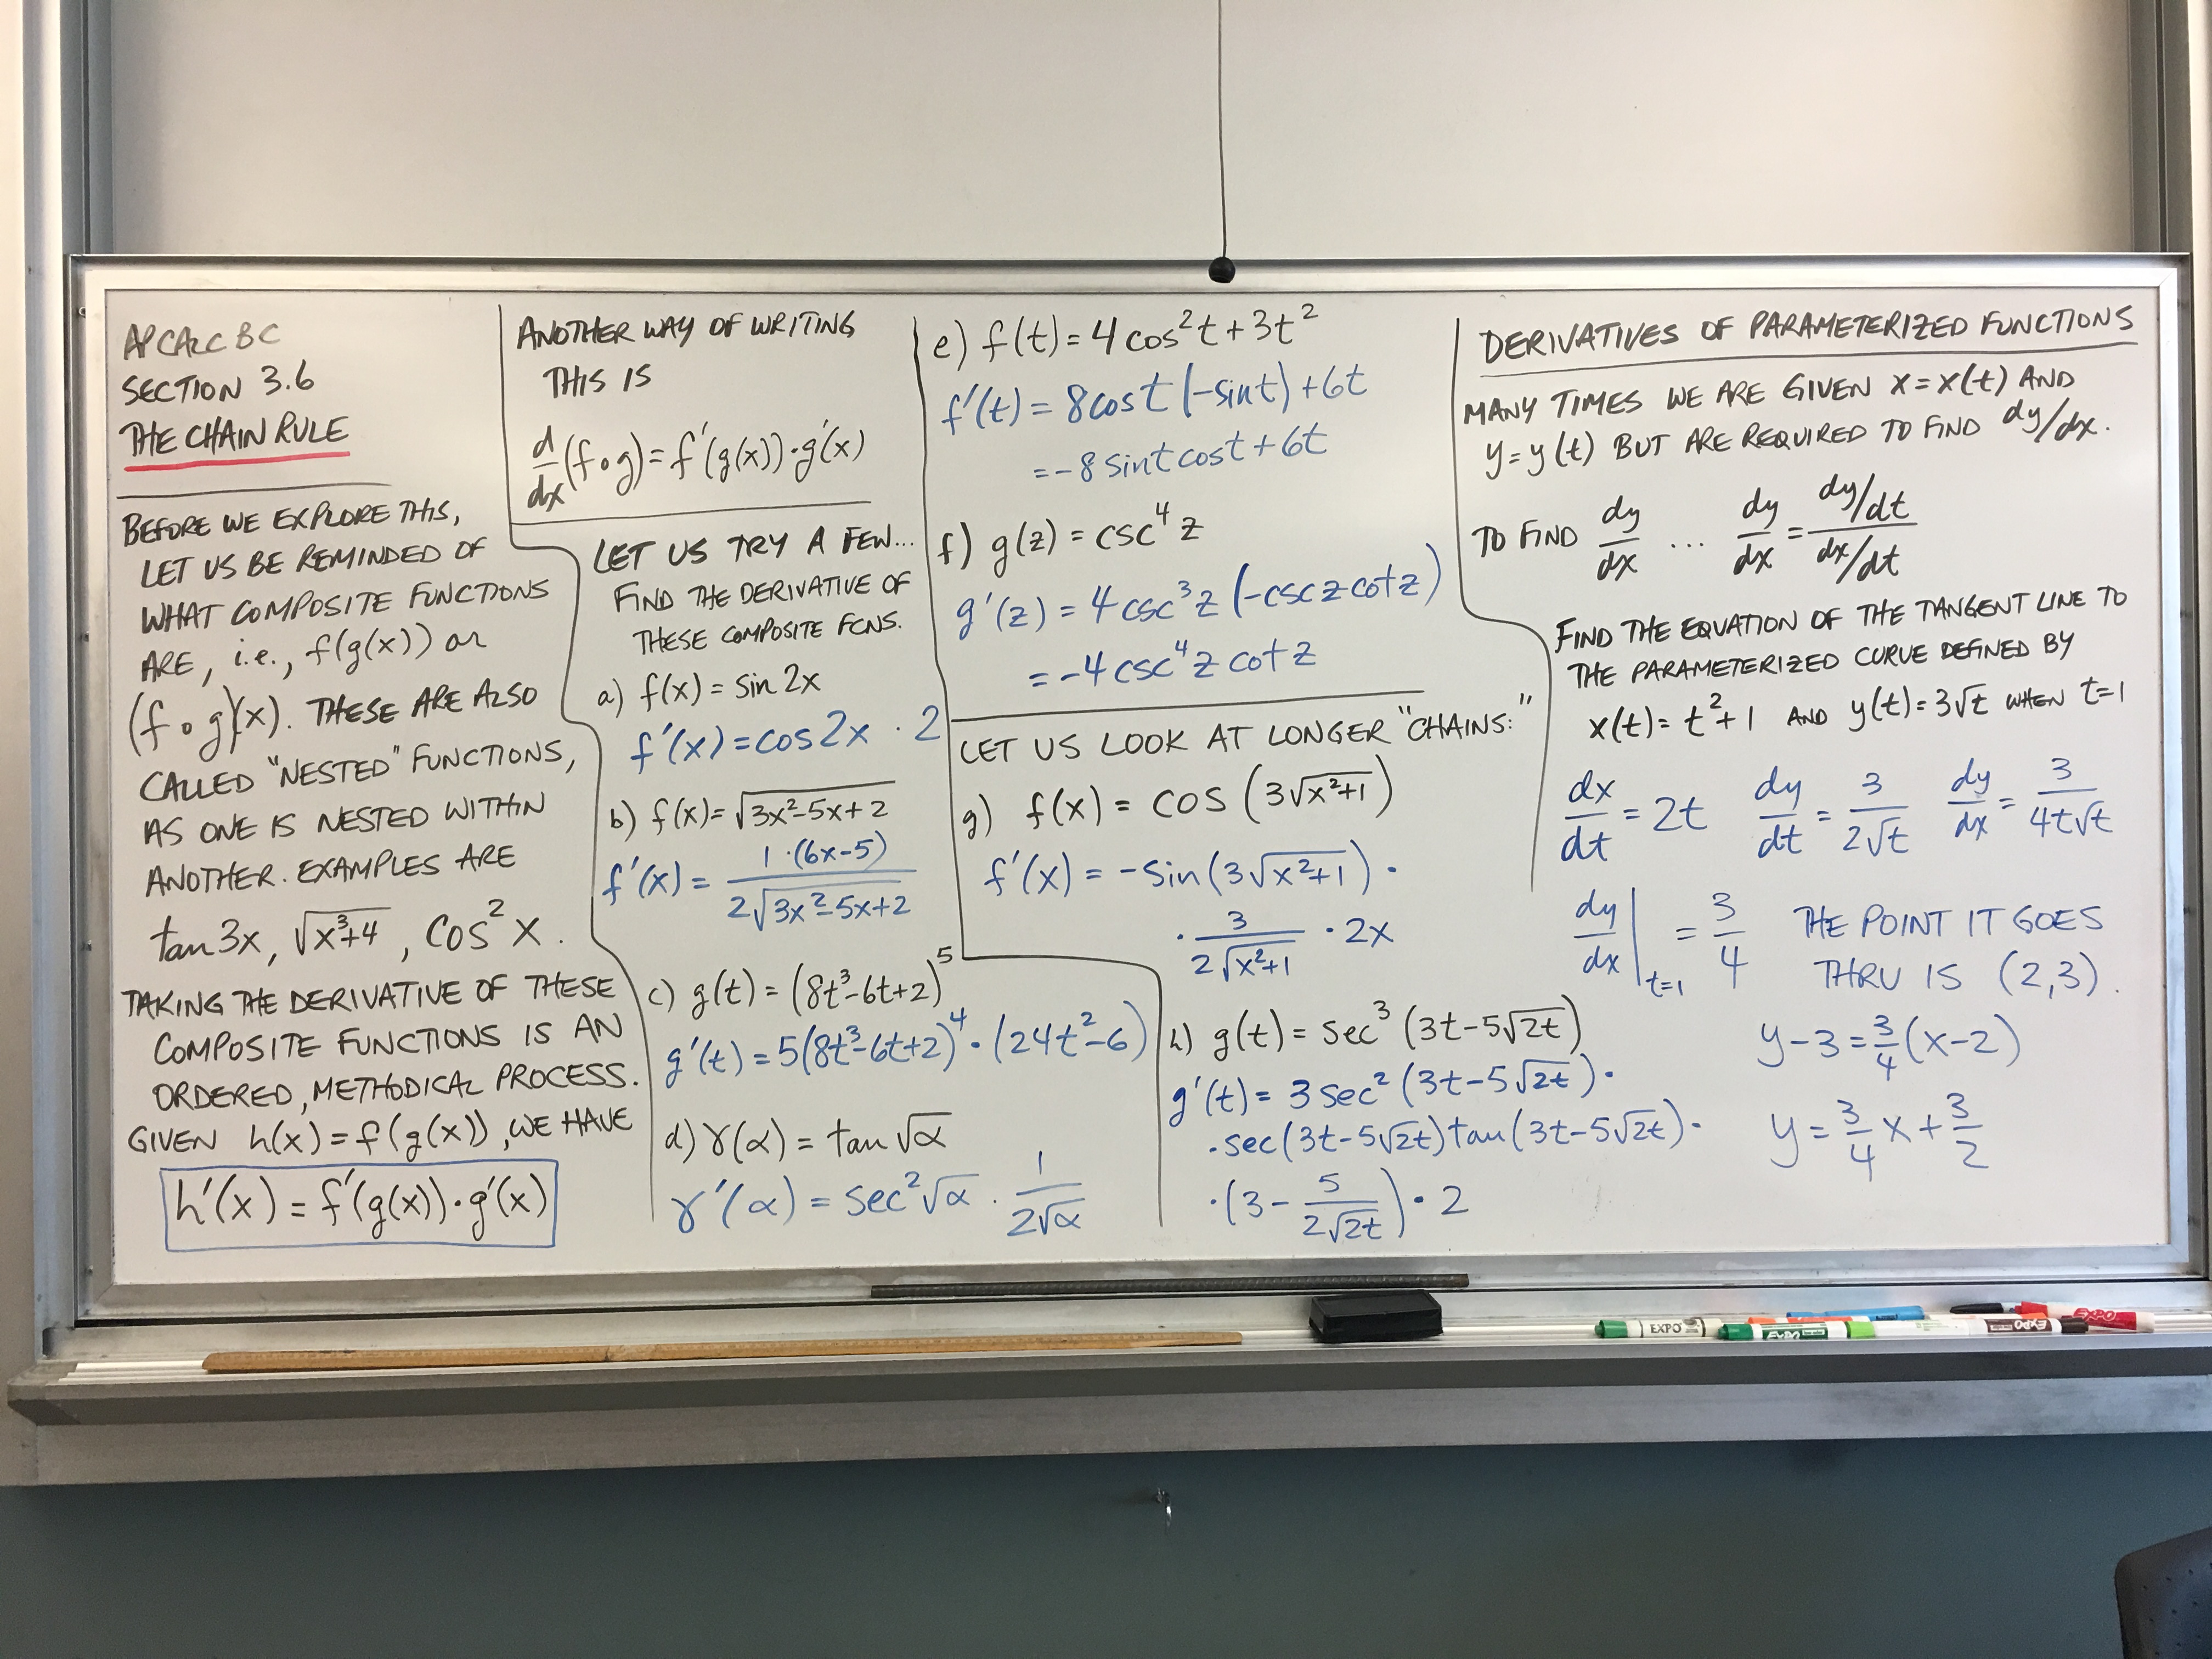 AP CALC BC
SECTION 3.6
THE CHAIN RULE
BEFORE WE EXPLORE THIS,
LET US BE REMINDED OF
WHAT COMPOSITE FUNCTIONS
ARE, i.e., f(g(x)) or
(f∘g)(x). THESE ARE ALSO
CALLED "NESTED" FUNCTIONS,
AS ONE IS NESTED WITHIN
ANOTHER. EXAMPLES ARE
tan 3x, √(x³+4), cos² x.
TAKING THE DERIVATIVE OF THESE
COMPOSITE FUNCTIONS IS AN
ORDERED, METHODICAL PROCESS.
GIVEN h(x) = f(g(x)), WE HAVE
h'(x) = f'(g(x))·g'(x)
ANOTHER WAY OF WRITING
THIS IS
d/dx (f∘g) = f'(g(x))·g'(x)
LET US TRY A FEW...
FIND THE DERIVATIVE OF
THESE COMPOSITE FCNS.
a) f(x) = sin 2x
f'(x) = cos 2x · 2
b) f(x) = √(3x²-5x+2)
f'(x) = 1·(6x-5) / 2√(3x²-5x+2)
c) g(t) = (8t³-6t+2)⁵
g'(t) = 5(8t³-6t+2)⁴ · (24t²-6)
d) r(α) = tan √α
r'(α) = sec² √α · 1/(2√α)
e) f(t) = 4 cos² t + 3t²
f'(t) = 8 cos t (-sin t) + 6t
= -8 sin t cos t + 6t
f) g(z) = csc⁴ z
g'(z) = 4 csc³ z (-csc z cot z)
= -4 csc⁴ z cot z
LET US LOOK AT LONGER "CHAINS:"
g) f(x) = cos (3√(x²+1))
f'(x) = -sin(3√(x²+1)) ·
· 3/(2√(x²+1)) · 2x
h) g(t) = sec³ (3t-5√(2t))
g'(t) = 3 sec² (3t-5√(2t)) ·
· sec(3t-5√(2t)) tan(3t-5√(2t)) ·
· (3 - 5/(2√(2t))) · 2
DERIVATIVES OF PARAMETERIZED FUNCTIONS
MANY TIMES WE ARE GIVEN x = x(t) AND
y = y(t) BUT ARE REQUIRED TO FIND dy/dx.
TO FIND dy/dx ... dy/dx = (dy/dt)/(dx/dt)
FIND THE EQUATION OF THE TANGENT LINE TO
THE PARAMETERIZED CURVE DEFINED BY
x(t) = t²+1 AND y(t) = 3√t WHEN t=1
dx/dt = 2t dy/dt = 3/(2√t) dy/dx = 3/(4t√t)
dy/dx | t=1 = 3/4 THE POINT IT GOES
THRU IS (2,3).
y-3 = 3/4 (x-2)
y = 3/4 x + 3/2
EXPO
EXPO
EXPO
EXPO